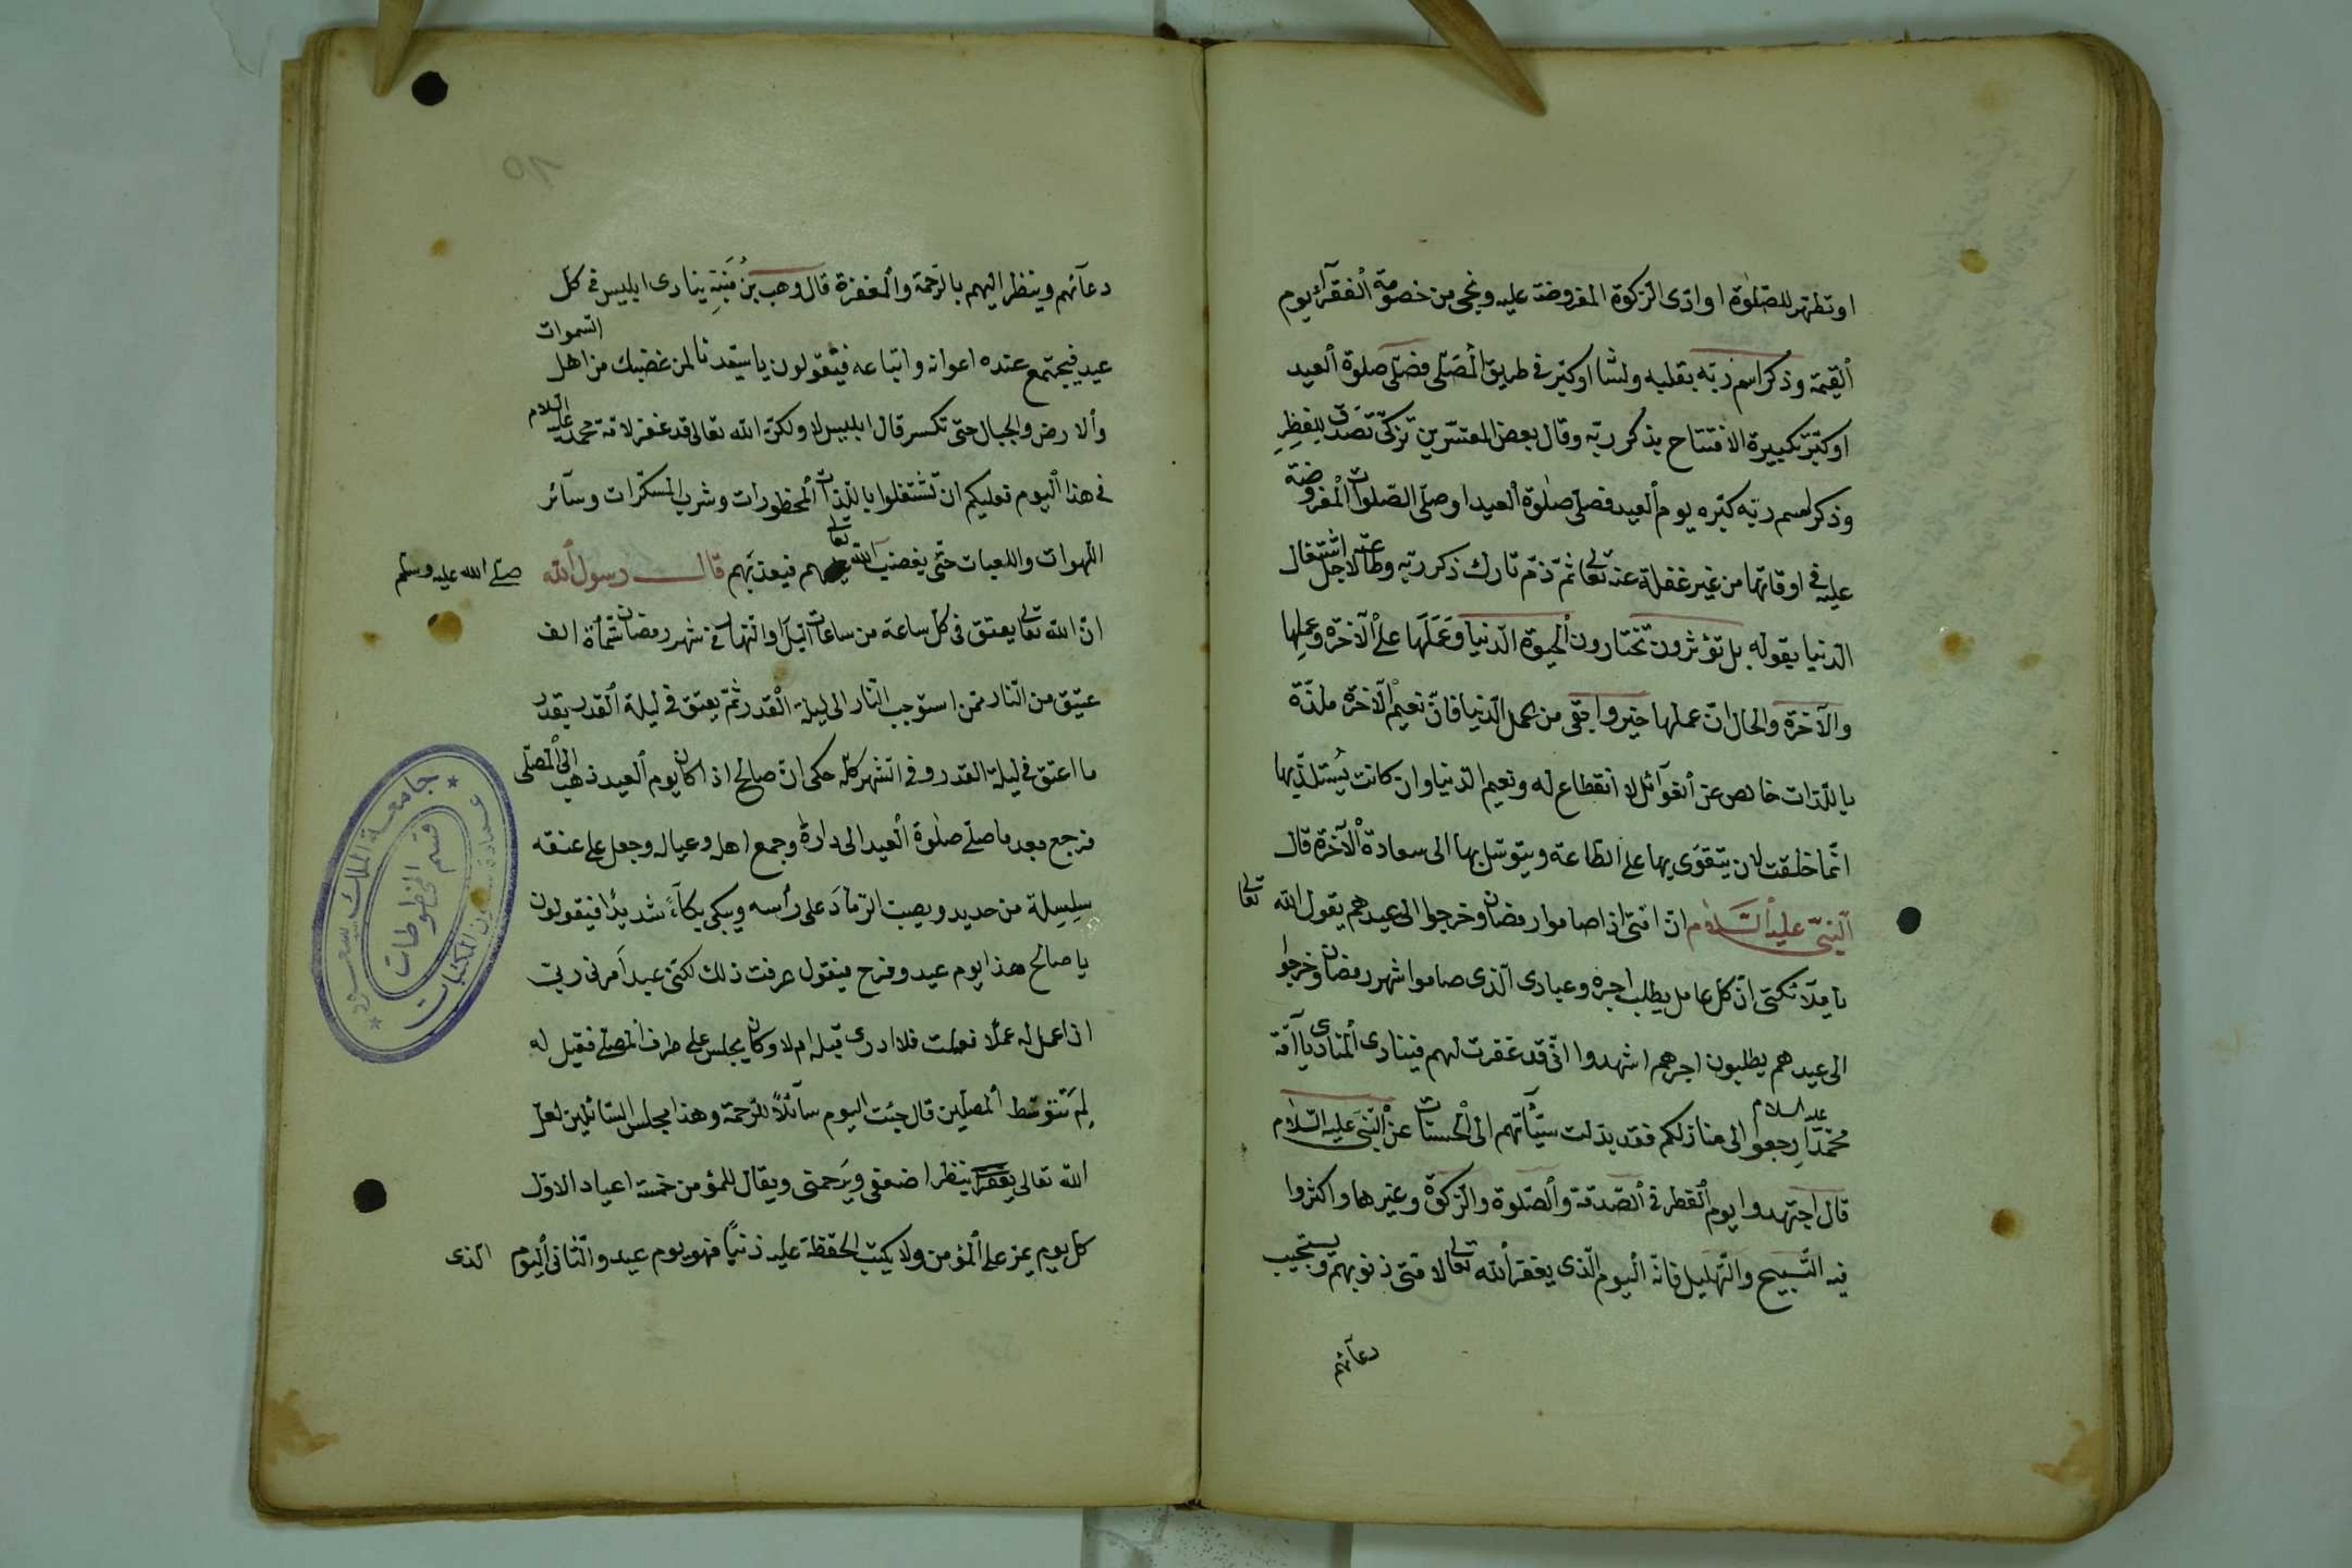 او تطهر للصلوة او ادى الزكوة المفروضة عليه ونجى من خصومة الفقرآء يوم
القيمة وذكر اسم ربه بقلبه ولسا اوكبر فى طريق المصلى فصلى صلوة العيد
او كبر تكبيرة الافتتاح بذكر ربه وقال بعض المفسرين تزكى تصدق للفطر
وذكر اسم ربه كبره يوم العيد فصلى صلوة العيد او صلى الصلوات المفروضة
عليه فى اوقاتها من غير غفلة عنه تعالى ثم ذم تارك ذكر ربه وطاعته لاجل اشتغال
الدنيا بقوله بل تؤثرون تختارون الحيوة الدنيا وعملها على الآخرة وعملها
والآخرة والحال ان عملها خير وابقى من عمل الدنيا فان نعيم الآخرة ملذة
باللذات خالص عن الغوآئل لا انقطاع له ونعيم الدنيا وان كانت يستلذ بها
انما خلقت لان يتقوى بها على الطاعة ويتوسل بها الى سعادة الآخرة قال
النبى عليه السلام ان امتى اذا صاموا رمضان وخرجوا الى عيدهم يقول الله تعالى
يا ملآئكتى ان كل عامل يطلب اجره وعبادى الذى صاموا شهر رمضان وخرجوا
الى عيدهم يطلبون اجرهم اشهدوا انى قد غفرت لهم فينادى المنادى يا امة
محمد عليه السلام ارجعوا الى منازلكم فقد بدلت سيئاتهم الى الحسنات عن النبى عليه السلام
قال اجتهدوا يوم الفطر فى الصدقة والصلوة والزكوة وغيرها واكثروا
فيه التسبيح والتهليل فانه اليوم الذى يغفر الله تعالى لامتى ذنوبهم ويستجيب
دعآئهم
دعآئهم وينظر اليهم بالرحمة والمغفرة قال وهب بن منبه ينادى ابليس فى كل
عيد فيجتمع عنده اعوانه واتباعه فيقولون يا سيدنا لمن غضبك من اهل السموات
والارض والجبال حتى تكسر قال ابليس لا ولكن الله تعالى قد غفر لامة محمد عليه السلام
فى هذا اليوم فعليكم ان تشتغلوا باللذات المحظورات وشرب المسكرات وسآئر
اللهوات واللعبات حتى يغضب الله تعالى فيعذبهم قال رسول الله صلى الله عليه وسلم
ان الله تعالى يعتق فى كل ساعة من ساعات الليل او النهار فى شهر رمضان ستمأة الف
عتيق من النار ممن استوجب النار الى ليلة القدر ثم يعتق فى ليلة القدر بقدر
ما اعتق فى ليلة القدر وفى الشهر كله حكى ان صالح اذا كان يوم العيد ذهب الى المصلى
فرجع بعد ما صلى صلوة العيد الى داره وجمع اهله وعياله وجعل على عنقه
سلسلة من حديد ويصب الرماد على رأسه ويبكى بكآء شديدا فيقولون
يا صالح هذا يوم عيد وفرح فيقول عرفت ذلك لكنى عبد امرنى ربى
ان اعمل له عملا فعملت فلا ادرى قبله ام لا وكان يجلس على طرف المصلى فقيل له
لم تتوسط المصلين قال جئت اليوم سآئلا للرحمة وهذا مجلس السائلين لعل
الله تعالى ينظر ضعفى ويرحمنى ويقال للمؤمن خمسة اعياد الاول
كل يوم يمر على المؤمن ولا يكتب الحفظة عليه ذنبا فهو يوم عيد والثانى اليوم الذى
جامعة الملك سعود
قسم المخطوطات
عمادة شؤون المكتبات